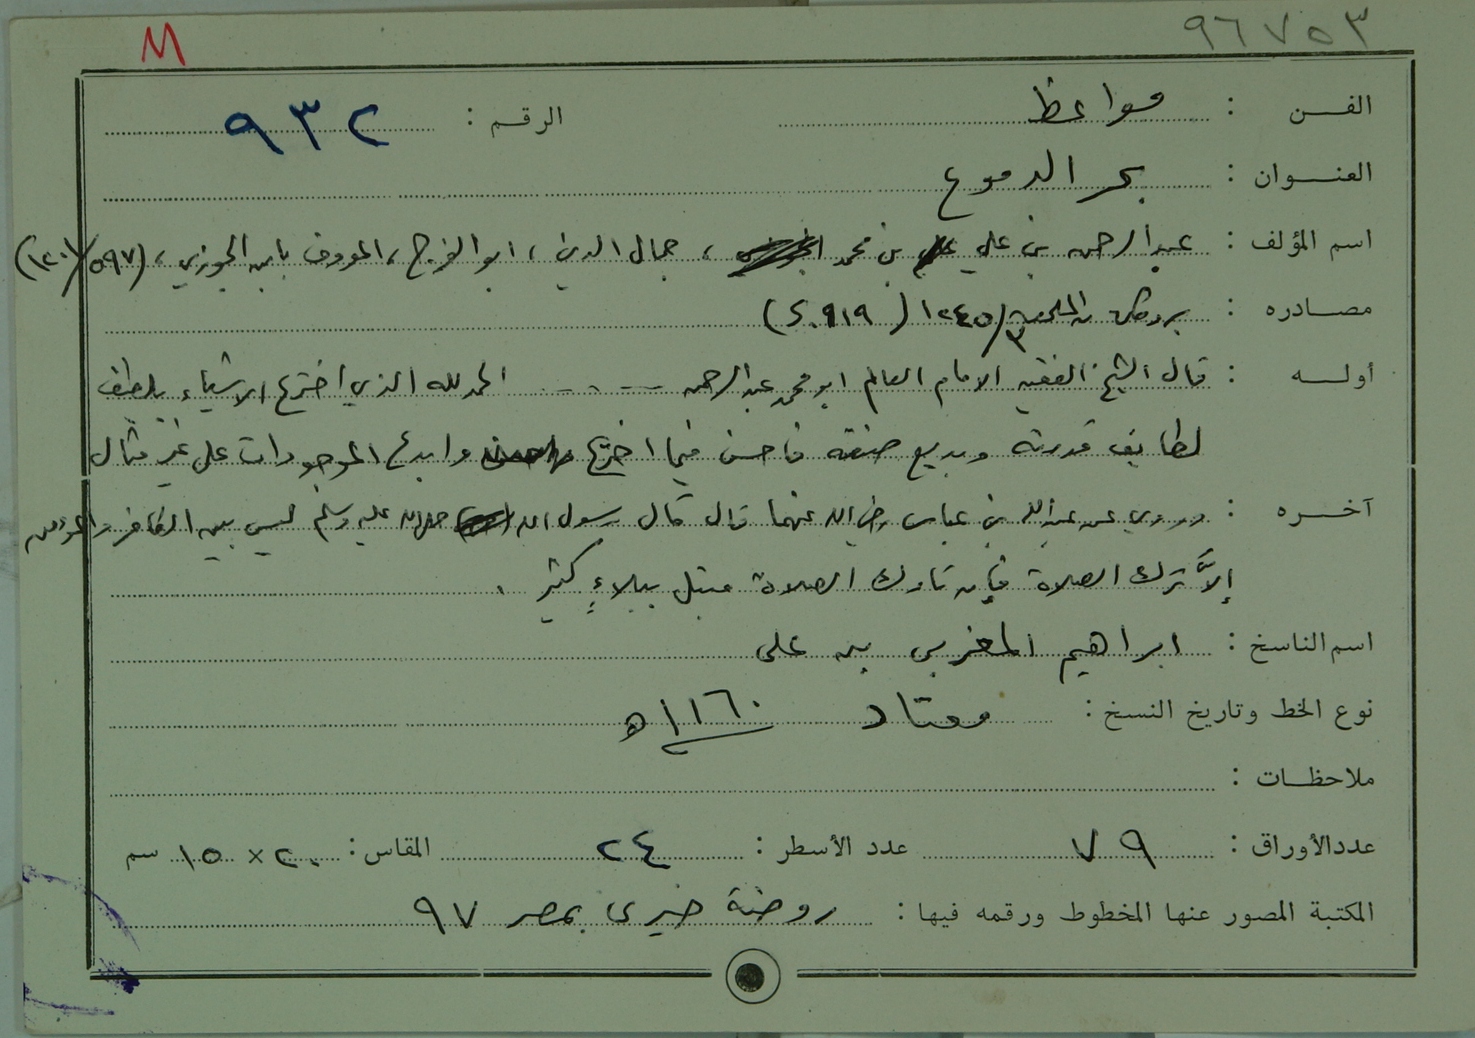 M
٩٦٧٥٣
الفن : مواعظ الرقم : ٩٣٢
العنوان : بحر الدموع
اسم المؤلف : عبدالرحمن بن علي بن محمد ، جمال الدين ، ابو الفرج ، المعروف بابن الجوزي ، (٥٩٧/١٢٠١)
مصادره : بروكلمان ١٢٤٥/٣ (٩١٩.S)
أوله : قال الشيخ الفقيه الامام العالم ابو محمد عبدالرحمن ---- الحمد لله الذي اخترع الاشياء بلطيف
لطايف قدرته وبديع صنعته فأحسن فيما اخترع وابدع الموجودات على غير مثال
آخره : وروي عن عبدالله بن عباس رضي الله عنهما قال قال رسول الله صلى الله عليه وسلم ليس بين الكافر والمؤمن
إلاَّ ترك الصلاة فإن تارك الصلاة مبتل ببلاءٍ كثير .
اسم الناسخ : ابراهيم المغربي بن على
نوع الخط وتاريخ النسخ : معتاد ١١٦٠ه
ملاحظات :
عدد الأوراق : ٧٩ عدد الأسطر : ٢٤ المقاس : ٢٠ × ١٥ سم
المكتبة المصور عنها المخطوط ورقمه فيها : روضة خيرى بمصر ٩٧